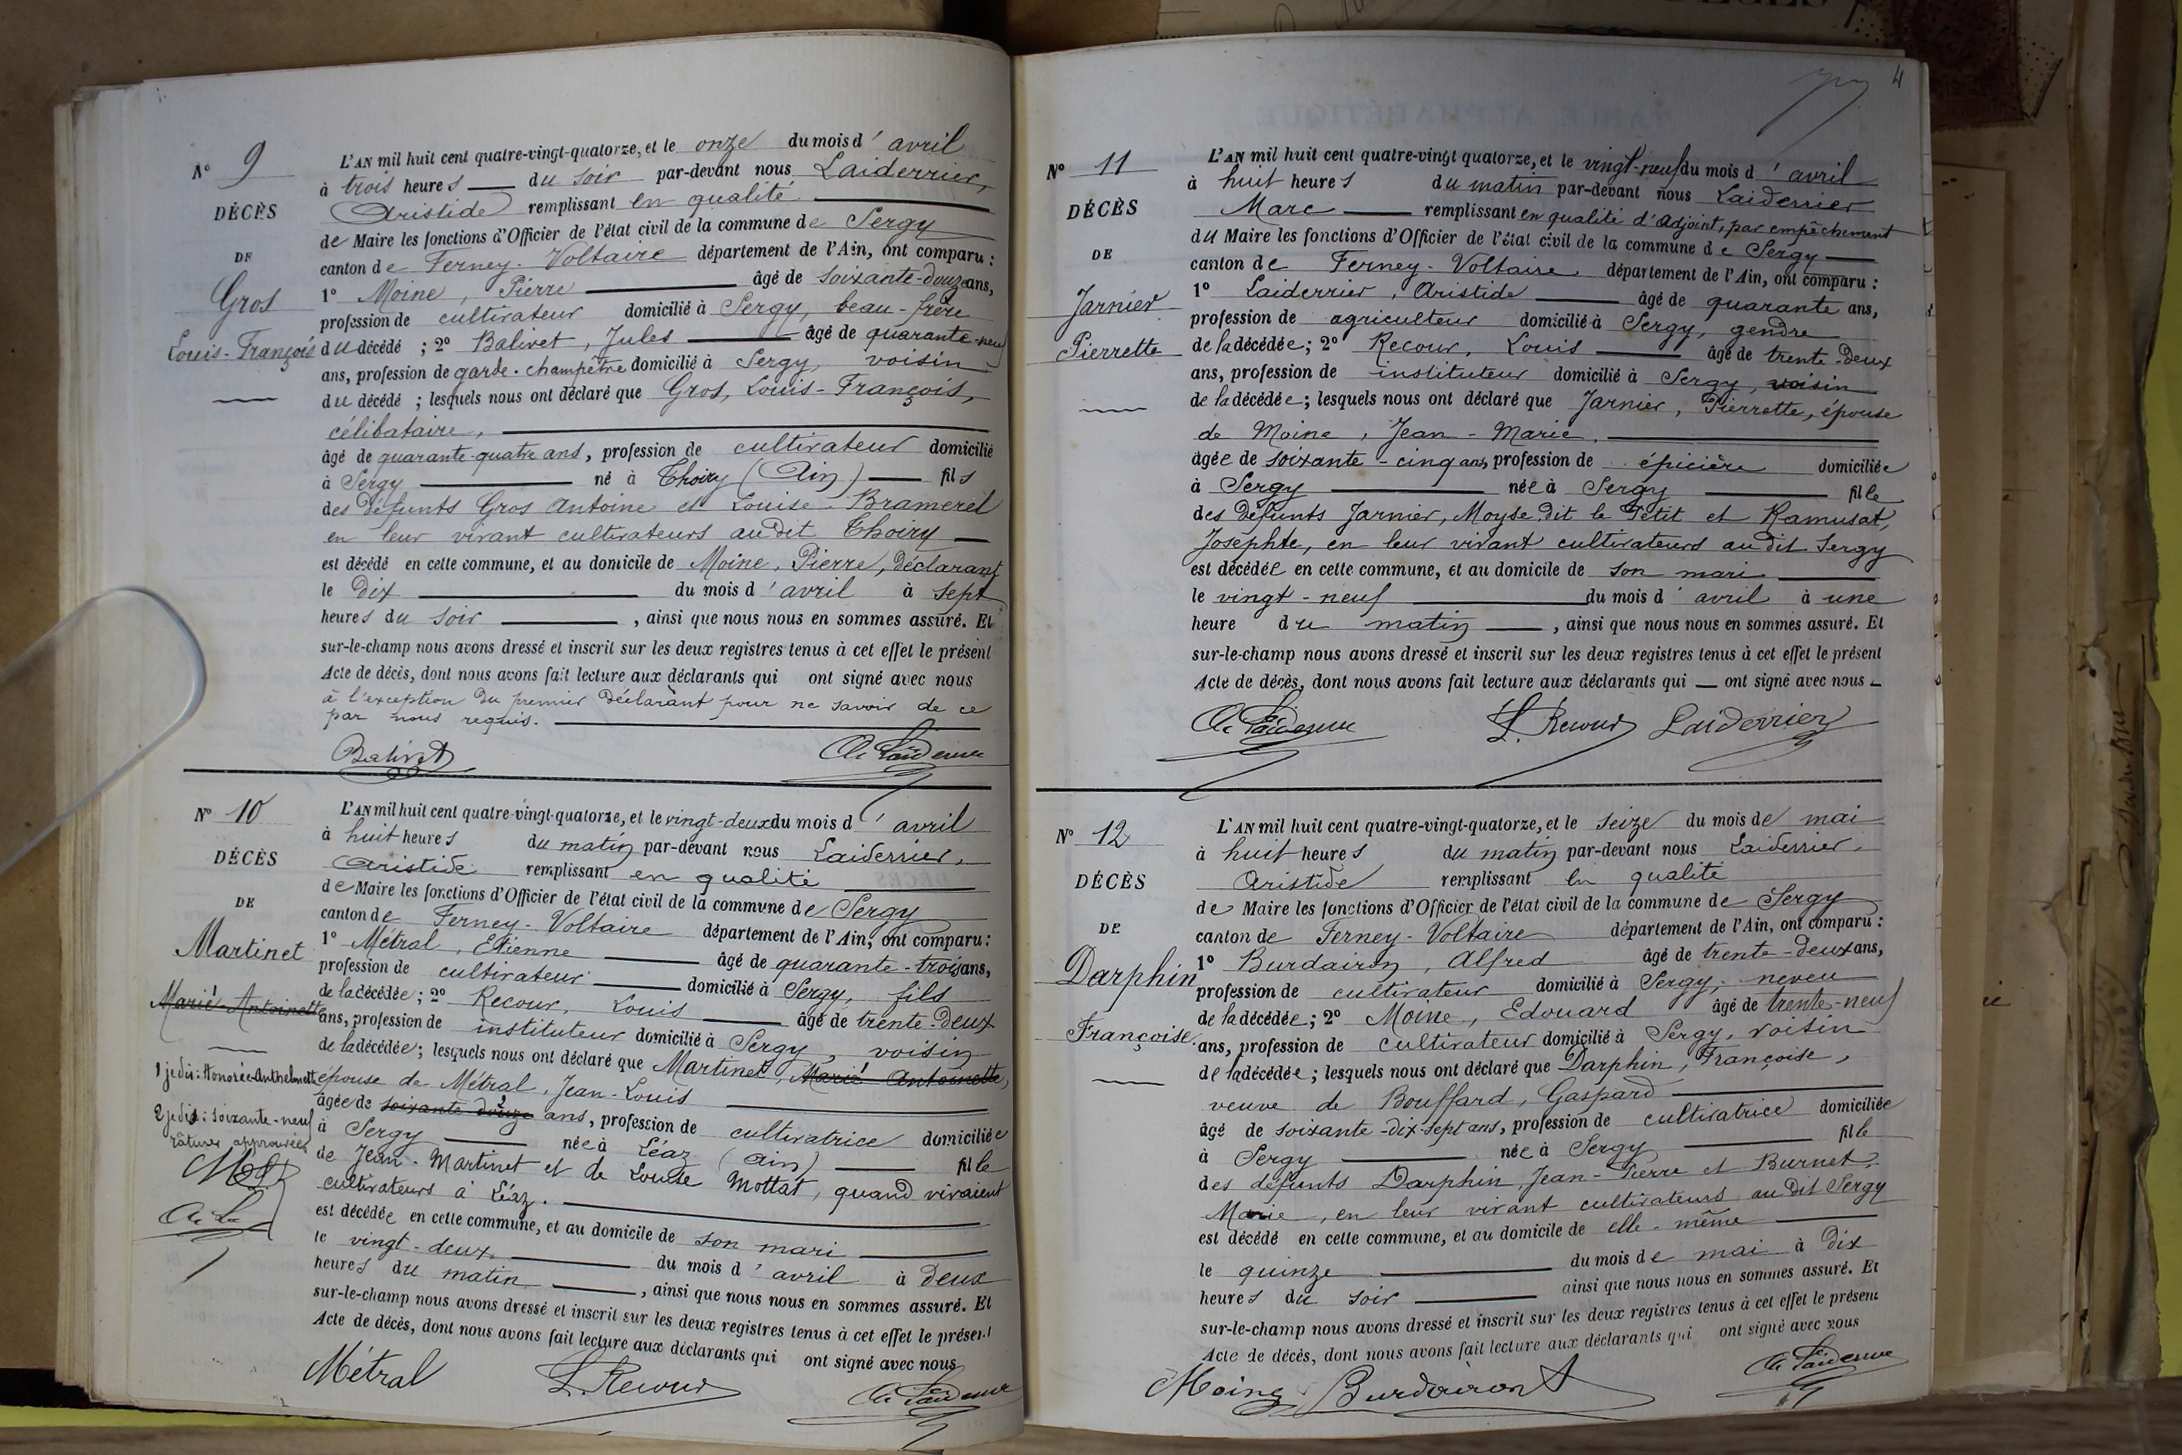 Nº 9
DÉCÈS
DE
Gros
Louis-François
L'AN mil huit cent quatre-vingt-quatorze, et le onze du mois d'avril
à trois heures du soir par-devant nous Laiderrier,
Aristide remplissant en qualité
de Maire les fonctions d'Officier de l'état civil de la commune de Sergy
canton de Ferney-Voltaire département de l'Ain, ont comparu :
1º Moine, Pierre âgé de soixante-douze ans,
profession de cultivateur domicilié à Sergy, beau-frère
du décédé ; 2º Balivet, Jules âgé de quarante-neuf
ans, profession de garde-champêtre domicilié à Sergy, voisin
du décédé ; lesquels nous ont déclaré que Gros, Louis-François,
célibataire,
âgé de quarante-quatre ans, profession de cultivateur domicilié
à Sergy né à Thoiry (Ain) fils
des défunts Gros Antoine et Louise Bramerel
en leur vivant cultivateurs audit Thoiry
est décédé en cette commune, et au domicile de Moine, Pierre, déclarant
le dix du mois d'avril à sept
heures du soir , ainsi que nous nous en sommes assuré. Et
sur-le-champ nous avons dressé et inscrit sur les deux registres tenus à cet effet le présent
Acte de décès, dont nous avons fait lecture aux déclarants qui ont signé avec nous
à l'exception du premier déclarant pour ne savoir de ce
par nous requis.
Balivet Ai Laiderrier
Nº 10
DÉCÈS
DE
Martinet
Marie-Antoinette
1 je dis : Honorée-Anthelmette
2 je dis : soixante-neuf
ratures approuvées
L'AN mil huit cent quatre-vingt-quatorze, et le vingt-deux du mois d'avril
à huit heures du matin par-devant nous Laiderrier,
Aristide remplissant en qualité
de Maire les fonctions d'Officier de l'état civil de la commune de Sergy
canton de Ferney-Voltaire département de l'Ain, ont comparu :
1º Métral, Etienne âgé de quarante-trois ans,
profession de cultivateur domicilié à Sergy, fils
de la décédée ; 2º Recour, Louis âgé de trente-deux
ans, profession de instituteur domicilié à Sergy, voisin
de la décédée ; lesquels nous ont déclaré que Martinet, Marie Antoinette,
épouse de Métral, Jean-Louis
âgée de soixante-douze ans, profession de cultivatrice domiciliée
à Sergy née à Léaz (Ain) fille
de Jean-Martinet et de Louise Mottat, quand vivaient
cultivateurs à Léaz.
est décédée en cette commune, et au domicile de son mari
le vingt-deux du mois d'avril à deux
heures du matin , ainsi que nous nous en sommes assuré. Et
sur-le-champ nous avons dressé et inscrit sur les deux registres tenus à cet effet le présent
Acte de décès, dont nous avons fait lecture aux déclarants qui ont signé avec nous
Métral L. Recour Ai Laiderrier
4
Nº 11
DÉCÈS
DE
Jarnier
Pierrette
L'AN mil huit cent quatre-vingt quatorze, et le vingt-neuf du mois d'avril
à huit heures du matin par-devant nous Laiderrier
Marc remplissant en qualité d'adjoint, par empêchement
du Maire les fonctions d'Officier de l'état civil de la commune de Sergy
canton de Ferney-Voltaire département de l'Ain, ont comparu :
1º Laiderrier, Aristide âgé de quarante ans,
profession de agriculteur domicilié à Sergy, gendre
de la décédée ; 2º Recour, Louis âgé de trente-deux
ans, profession de instituteur domicilié à Sergy, voisin
de la décédée ; lesquels nous ont déclaré que Jarnier, Pierrette, épouse
de Moine, Jean-Marie,
âgée de soixante-cinq ans, profession de épicière domiciliée
à Sergy née à Sergy fille
des défunts Jarnier, Moyse dit le Petit et Ramusat,
Josephte, en leur vivant cultivateurs audit Sergy
est décédée en cette commune, et au domicile de son mari
le vingt-neuf du mois d'avril à une
heure du matin , ainsi que nous nous en sommes assuré. Et
sur-le-champ nous avons dressé et inscrit sur les deux registres tenus à cet effet le présent
Acte de décès, dont nous avons fait lecture aux déclarants qui ont signé avec nous
Ai Laiderrier L. Recour Laiderrier
Nº 12
DÉCÈS
DE
Darphin
Françoise
L'AN mil huit cent quatre-vingt-quatorze, et le seize du mois de mai
à huit heures du matin par-devant nous Laiderrier,
Aristide remplissant en qualité
de Maire les fonctions d'Officier de l'état civil de la commune de Sergy
canton de Ferney-Voltaire département de l'Ain, ont comparu :
1º Burdairon, Alfred âgé de trente-deux ans,
profession de cultivateur domicilié à Sergy, neveu
de la décédée ; 2º Moine, Edouard âgé de trente-neuf
ans, profession de cultivateur domicilié à Sergy, voisin
de la décédée ; lesquels nous ont déclaré que Darphin, Françoise,
veuve de Bouffard, Gaspard
âgé de soixante-dix-sept ans, profession de cultivatrice domiciliée
à Sergy née à Sergy fille
des défunts Darphin Jean-Pierre et Burnet,
Marie, en leur vivant cultivateurs audit Sergy
est décédé en cette commune, et au domicile de elle-même
le quinze du mois de mai à dix
heures du soir ainsi que nous nous en sommes assuré. Et
sur-le-champ nous avons dressé et inscrit sur les deux registres tenus à cet effet le présent
Acte de décès, dont nous avons fait lecture aux déclarants qui ont signé avec nous
Moine Burdairon A Ai Laiderrier